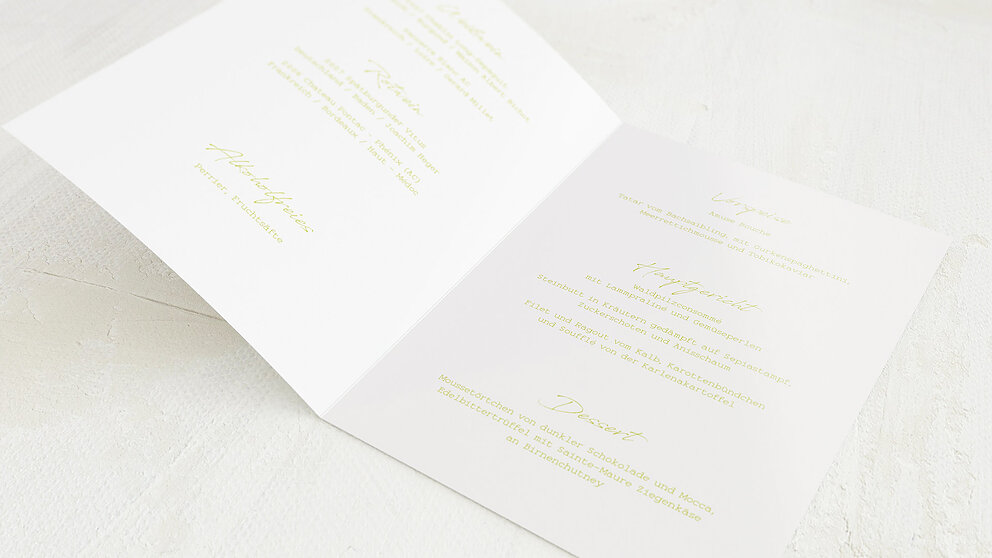 Rotwein
2017 Spätburgunder Vitus
Deutschland / Baden / Joachim Heger
2008 Chateau Pontac - Phénix (AC)
Frankreich / Bordeaux / Haut - Medoc
Alkoholfreies
Perrier, Fruchtsäfte
Vorspeise
Amuse Bouche
Tatar vom Bachsaibling, mit Gurkenspaghettini,
Meerrettichmousse und Tobikokaviar
Hauptgericht
Waldpilzconsomme
mit Lammpraline und Gemüseperlen
Steinbutt in Kräutern gedämpft auf Sepiastampf,
Zuckerschoten und Anisschaum
Filet und Ragout vom Kalb, Karottenbündchen
und Soufflé von der Karlenakartoffel
Dessert
Moussetörtchen von dunkler Schokolade und Mocca,
Edelbittertrüffel mit Sainte-Maure Ziegenkäse
an Birnenchutney